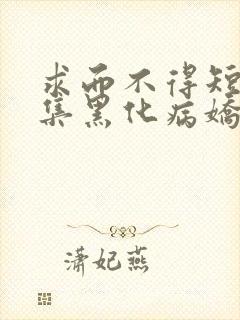 求而不得短
集黑化病嬌
潇妃燕